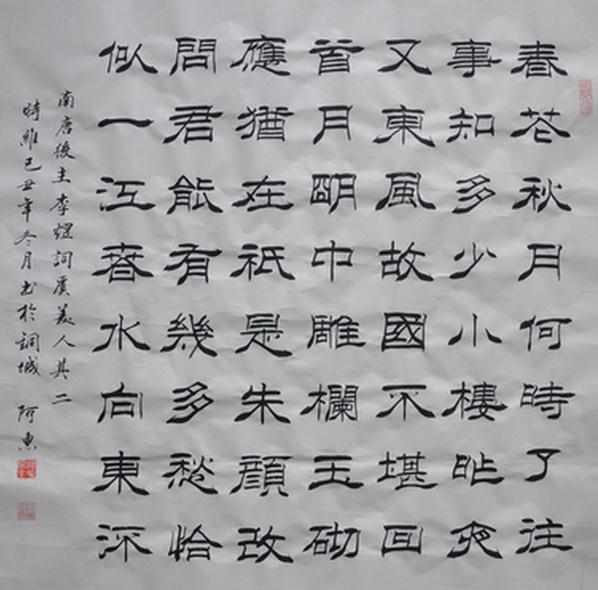 春花秋月何時了往
事知多少小樓昨夜
又東風故國不堪回
首月明中雕欄玉砌
應猶在祇是朱顏改
問君能有幾多愁恰
似一江春水向東流
南唐後主李煜詞虞美人其二
時維己丑年冬月书於詞城 阿惠